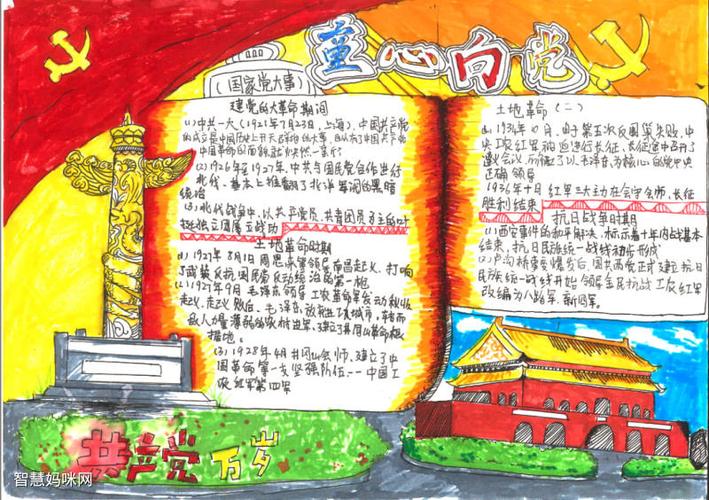 童心向党
(国家党大事)
建党的大革命期间
(1)中共一大(1921年7月23日,上海),中国共产党
的成立是中国历史上开天辟地的大事,自从有了中国共产党
中国革命的面貌就焕然一新了
(2)1926年至1927年,中共与国民党合作进行
北伐,基本上推翻了北洋军阀的黑暗
统治
(3)北伐战争中,以共产党员,共青团员为主的叶
挺独立团屡立战功
土地革命时期
(1)1927年8月1日周恩来等领导南昌起义,打响
了武装反抗国民党反动统治的第一枪
(2)1927年9月毛泽东领导工农革命军发动秋收
起义,起义败后,毛泽东放弃进攻大城市,转向
敌人力量薄弱的农村进军,建立了井冈山革命根
据地。
(3)1928年4月井冈山会师,建立了中
国革命第一支坚强队伍--中国工
农红军第四军
土地革命(二)
(1)1934年10月,由于第五次反围剿失败,中
央工农红军被迫进行长征,长征途中召开了
遵义会议,确立了以毛泽东为核心的党中央
正确领导
1936年十月红军三大主力在会宁会师,长征
胜利结束
抗日战争时期
(1)西安事件的和平解决,标示着十年内战基本
结束,抗日民族统一战线初步形成
(2)卢沟桥事变爆发后,国共两党正式建立抗日
民族统一战线开始领导全民抗战工农红军
改编为八路军、新四军。
共产党万岁
智慧妈咪网